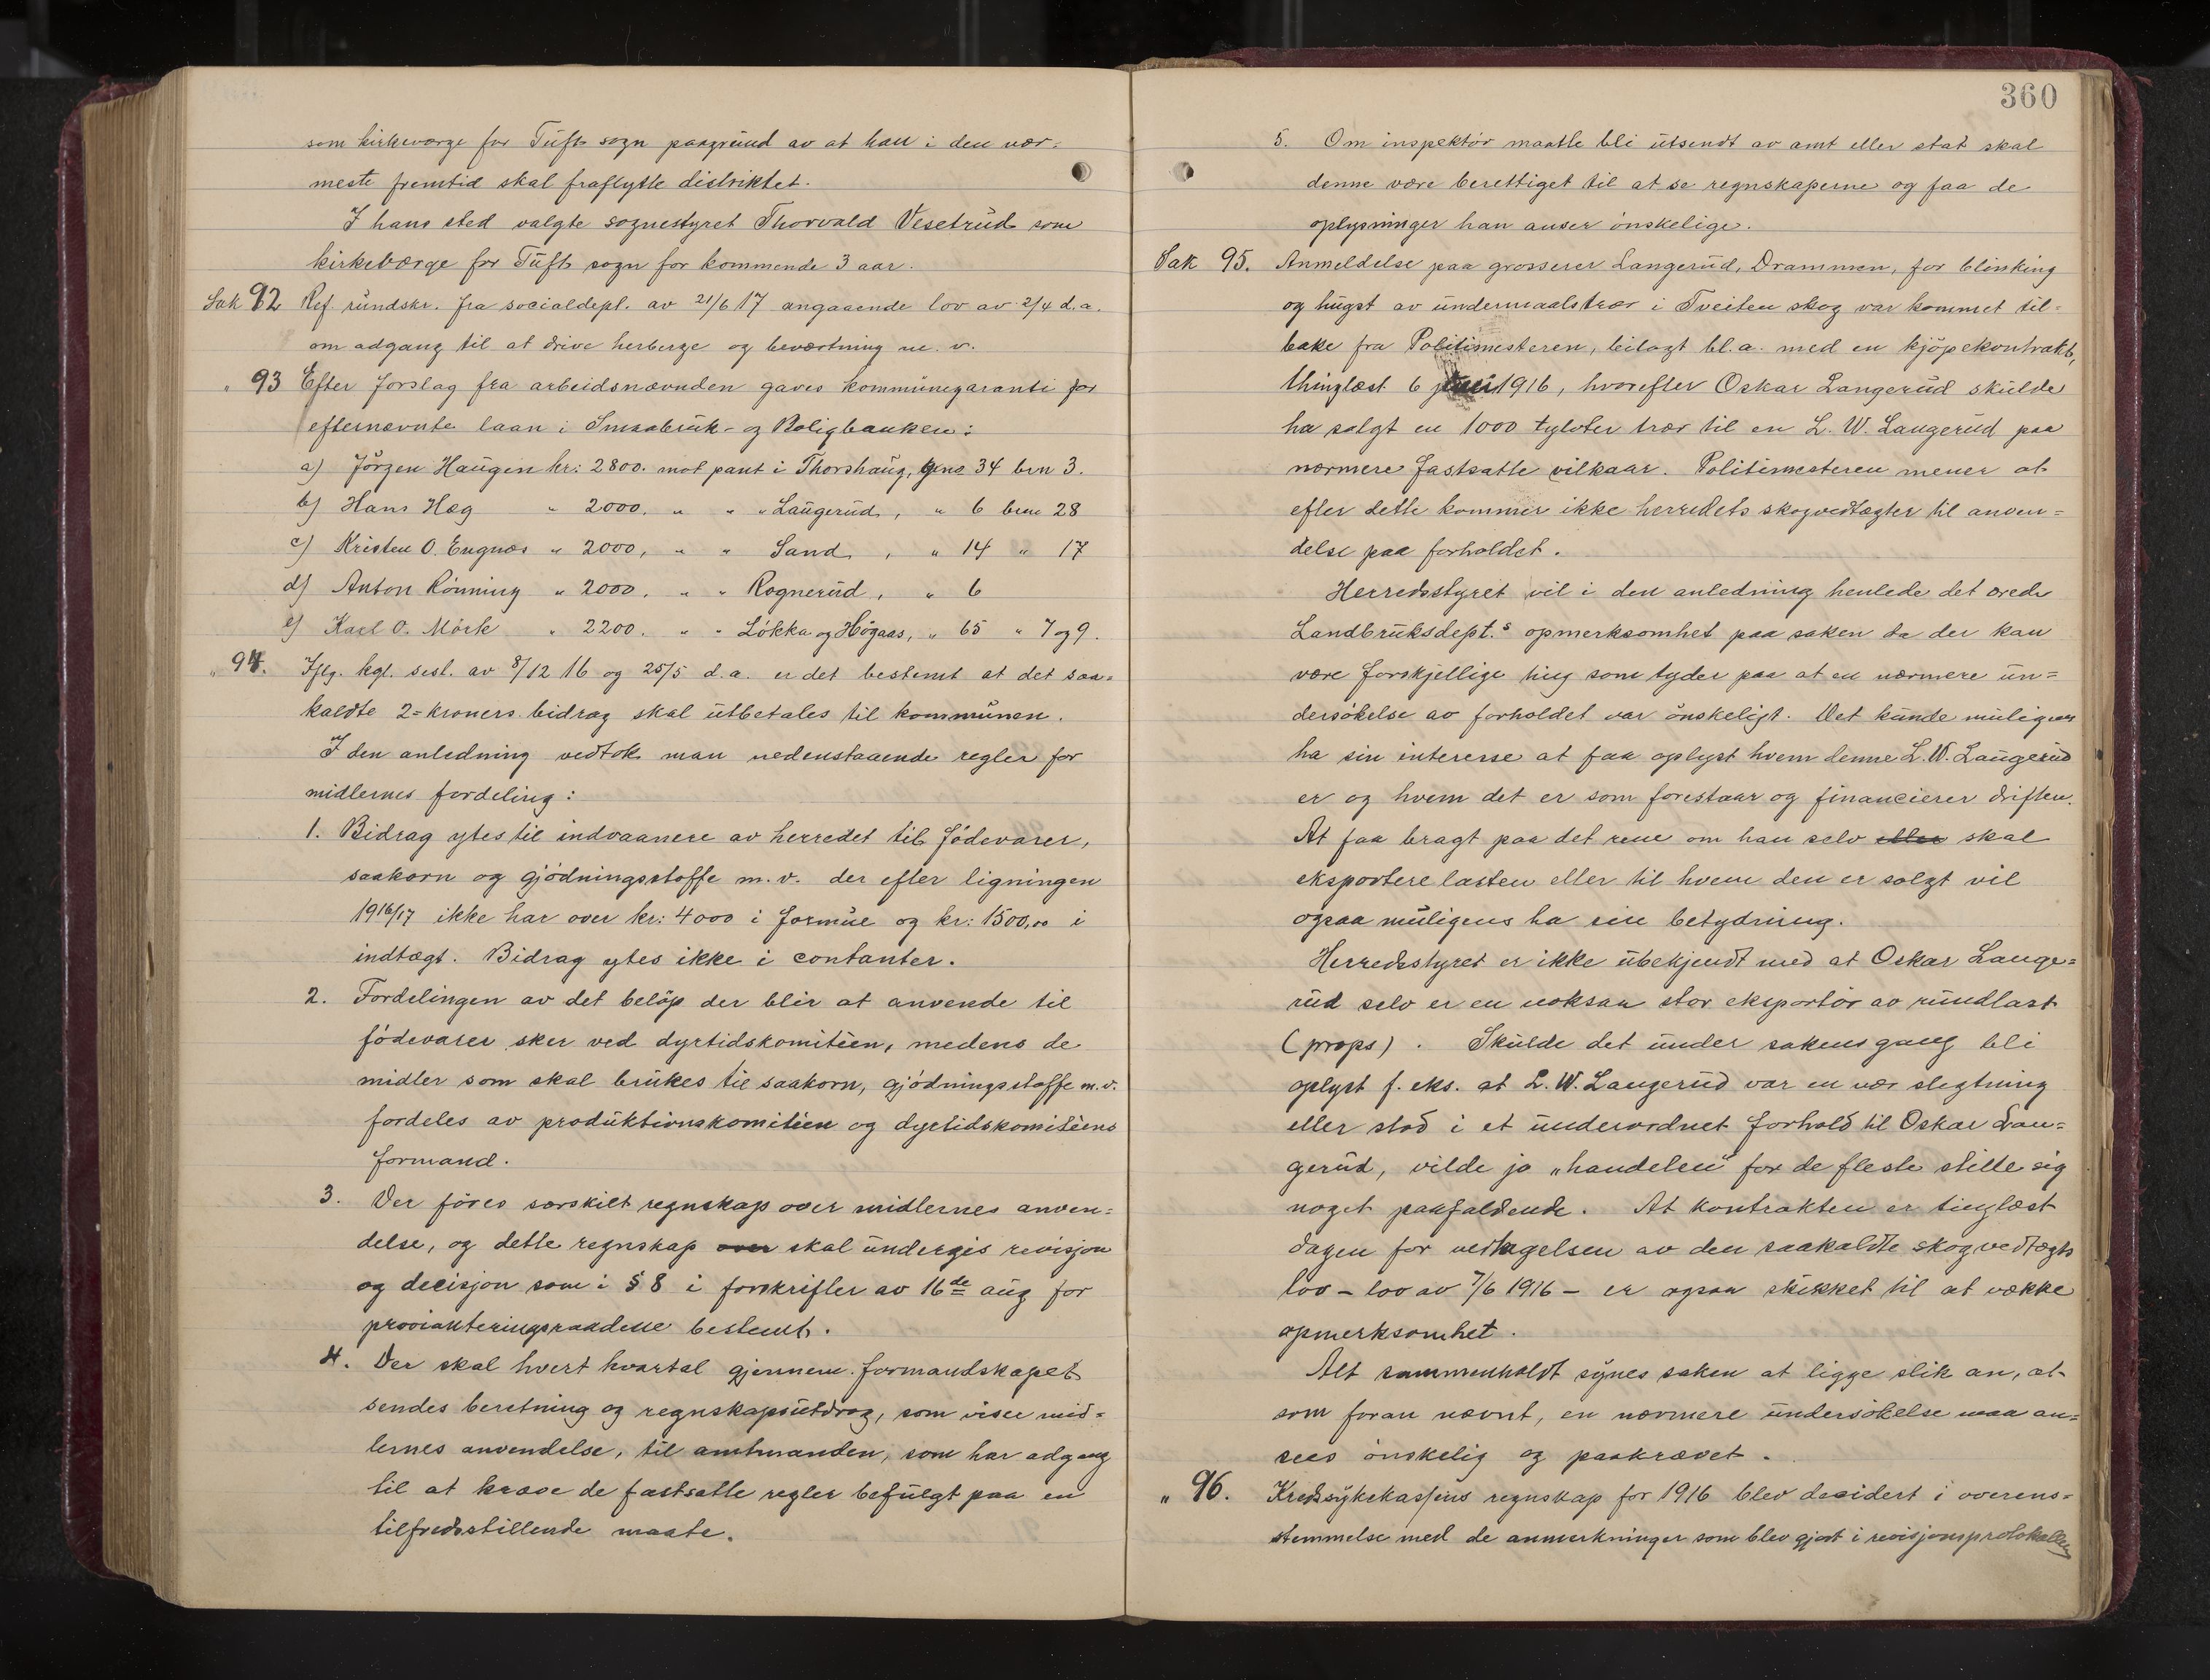 som kirkeværge for Tufts sogn paagrund av at han i den nær-
meste fremtid skal fraflytte distriktet.
I hans sted valgte sognestyret Thorvald Vesetrud som
kirkeværge for Tufts sogn for kommende 3 aar.
Sak 92 Ref. rundskr. fra socialdept. av 21/6 17 angaaende lov av 2/4 d.a.
om adgang til at drive herberge og beværtning m. v.
" 93 Efter forslag fra arbeidsnævnden gaves kommunegaranti for
efternævnte laan i Smaabruk- og Boligbanken:
a) Jörgen Haugen kr: 2800. mot pant i Thorshaug, gno 34 brn 3.
b) Hans Hæg " 2000. " " " Laugerud, " 6 brn 28
c) Kristen O. Engnæs " 2000, " " Sand, " 14 " 17
d) Anton Rönning " 2000. " " Rognerud, " 6
e) Karl O. Mörk " 2200. " " Lökka og Högaas, " 65 " 7 og 9.
" 94. Iflg. kgl. resl. av 8/12 16 og 25/5 d.a. er det bestemt at det saa-
kaldte 2-kroners bidrag skal utbetales til kommunen.
I den anledning vedtok man nedenstaaende regler for
midlernes fordeling:
1. Bidrag ytes til indvaanere av herredet til födevarer,
saakorn og gjödningsstoffe m.v. der efter ligningen
1916/17 ikke har over kr: 4000 i formue og kr: 1500,00 i
indtægt. Bidrag ytes ikke i contanter.
2. Fordelingen av det belöp der blir at anvende til
födevarer sker ved dyrtidskomitéen, medens de
midler som skal brukes til saakorn, gjödningsstoffe m.v.
fordeles av produktionskomitéen og dyrtidskomitéens
formand.
3. Der föres særskilt regnskap over midlernes anven-
delse, og dette regnskap over skal undergis revisjon
og decisjon som i § 8 i forskrifter av 16de aug for
provianteringsraadene bestemt.
4. Der skal hvert kvartal gjennem formandskapet
sendes beretning og regnskapsutdrag, som viser mid-
lernes anvendelse, til amtmanden, som har adgang
til at kræve de fastsatte regler befulgt paa en
tilfredsstillende maate.
360
5. Om inspektör maatte bli utsendt av amt eller stat skal
denne være berettiget til at se regnskaperne og faa de
oplysninger han anser önskelige.
Sak 95. Anmeldelse paa grosserer Langerud, Drammen, for blinking
og hugst av undermaalstrær i Tveiten skog var kommet til-
bake fra Politimesteren, bilagt bl.a. med en kjöpekontrakt,
thinglæst 6 juni 1916, hvorefter Oskar Langerud skulde
ha solgt en 1000 tylvter trær til en L. W. Langerud paa
nærmere fastsatte vilkaar. Politimesteren mener at
efter dette kommer ikke herredets skogvedtægter til anven-
delse paa forholdet.
Herredsstyret vil i den anledning henlede det ærede
Landbruksdept.s opmerksomhet paa saken da der kan
være forskjellige ting som tyder paa at en nærmere un-
dersökelse av forholdet var önskeligt. Det kunde muligens
ha sin interesse at faa oplyst hvem denne L. W. Langerud
er og hvem det er som forestaar og financierer driften.
At faa bragt paa det rene om han selv eller skal
eksportere lasten eller til hvem den er solgt vil
ogsaa muligens ha sin betydning.
Herredsstyret er ikke ubekjendt med at Oskar Lange-
rud selv er en noksaa stor eksportör av rundlast
(props). Skulde det under sakens gang bli
oplyst f. eks. at L. W. Langerud var en nær slegtning
eller stod i et underordnet forhold til Oskar Lan-
gerud, vilde jo „handelen" for de fleste stille sig
noget paafaldende. At kontrakten er tinglæst
dagen for vedtagelsen av den saakaldte skogvedtægts
lov – lov av 7/6 1916 – er ogsaa skikket til at vække
opmerksomhet.
Alt sammenholdt synes saken at ligge slik an, at
som foran nævnt, en nærmere undersökelse maa an-
sees önskelig og paakrævet.
" 96. Kredssykekassens regnskap for 1916 blev decidert i overens-
stemmelse med de anmerkninger som blev gjort i revisjonsprotokollen